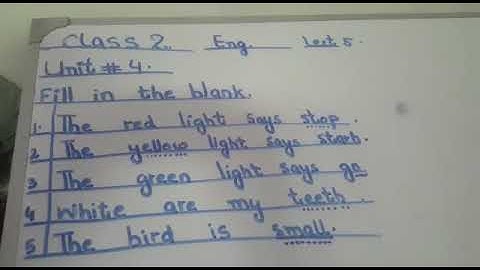 Class 2. Eng. Lect 5.
Unit # 4.
Fill in the blank.
1. The red light says stop.
2 The yellow light says start.
3 The green light says go
4 White are my teeth.
5 The bird is small.